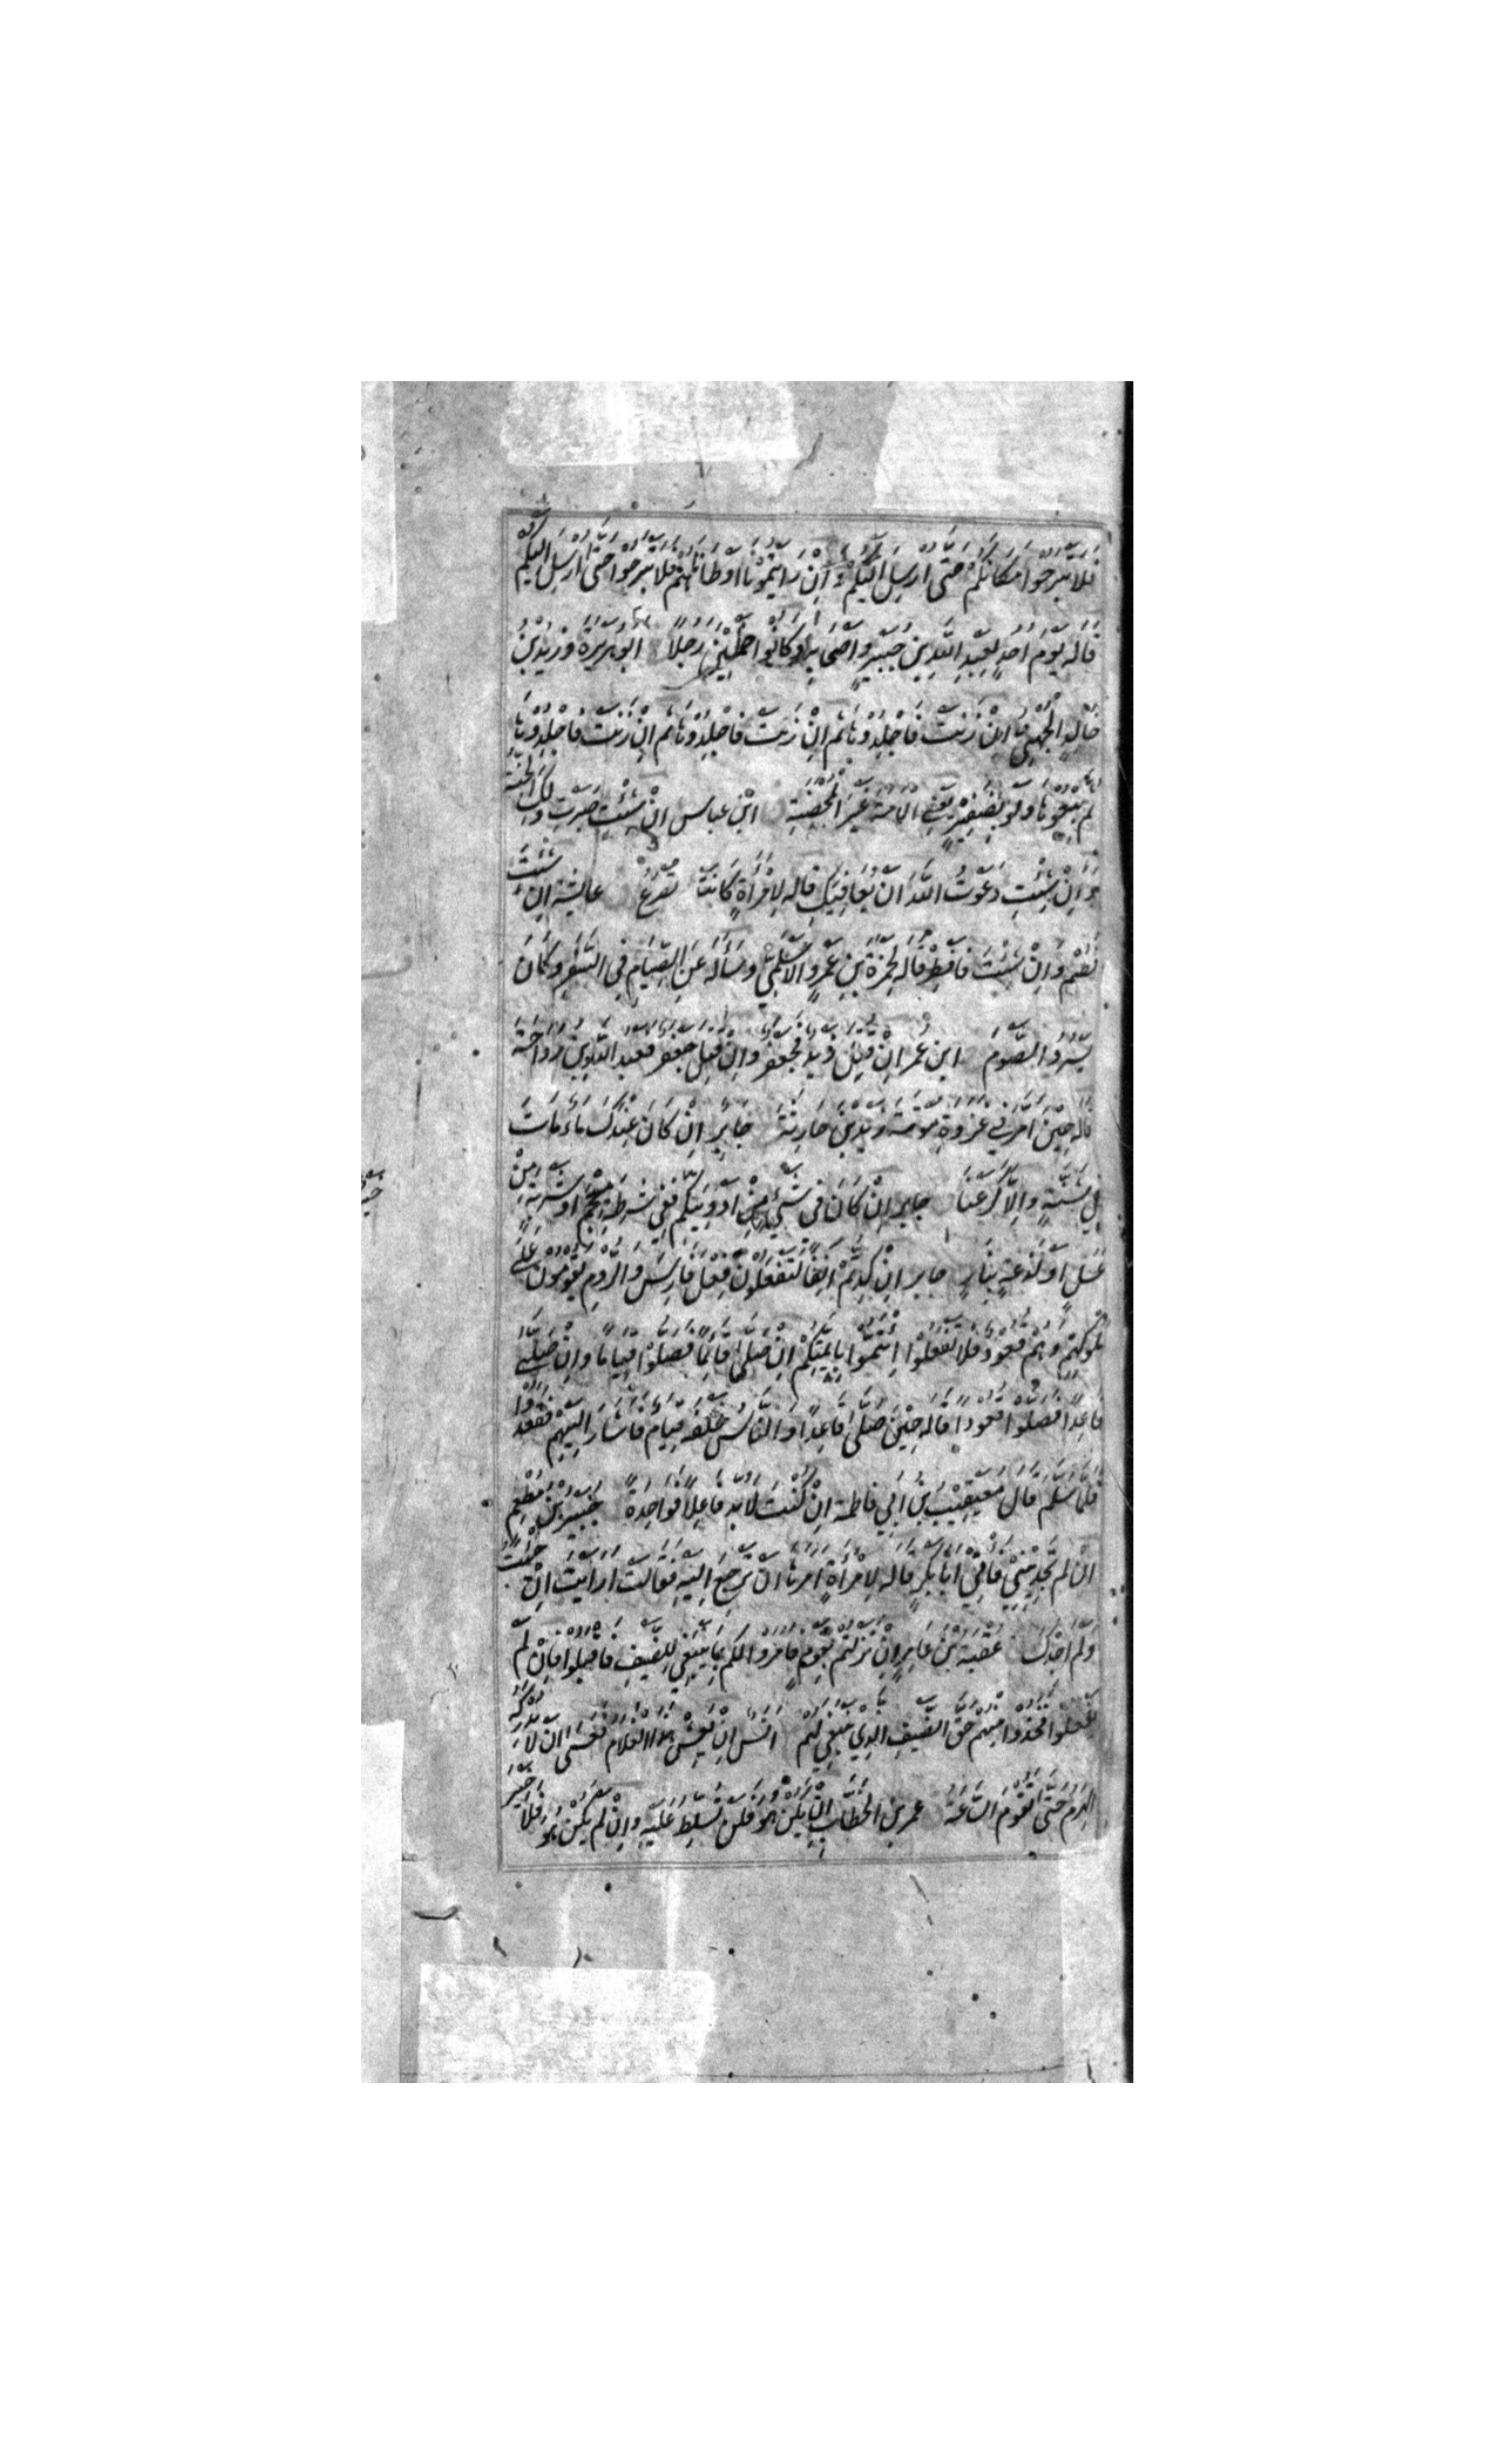 فَلَا تَبْرَحُوا مَكَانَكُمْ حَتَّى أُرْسِلَ إِلَيْكُمْ وَإِنْ رَأَيْتُمُونَا أَوْطَأْنَاهُمْ فَلَا تَبْرَحُوا حَتَّى أُرْسِلَ إِلَيْكُمْ
قَالَهُ يَوْمَ أُحُدٍ لِعَبْدِ اللَّهِ بْنِ جُبَيْرٍ وَأَصْحَابِهِ وَكَانُوا خَمْسِينَ رَجُلًا ابو هريرة وزيد بن
خَالِدٍ الْجُهَنِيُّ إِنْ زَنَتْ فَاجْلِدُوهَا ثُمَّ إِنْ زَنَتْ فَاجْلِدُوهَا ثُمَّ إِنْ زَنَتْ فَاجْلِدُوهَا
ثُمَّ بِيعُوهَا وَلَوْ بِضَفِيرٍ يَعْنِي الْأَمَةَ غَيْرَ الْمُحْصَنَةِ ابْنِ عباس إِنْ شِئْتِ صَبَرْتِ وَلَكِ الْجَنَّةُ
وَإِنْ شِئْتِ دَعَوْتُ اللَّهَ أَنْ يُعَافِيَكِ قَالَهُ لِامْرَأَةٍ كَانَتْ تُصْرَعُ عايشة إِنْ شِئْتَ
فَصُمْ وَإِنْ شِئْتَ فَأَفْطِرْ قَالَهُ لِحَمْزَةَ بْنِ عَمْرٍو الْأَسْلَمِيِّ وَسَأَلَهُ عَنِ الصِّيَامِ فِي السَّفَرِ وَكَانَ
يَسْرُدُ الصَّوْمَ ابن عُمر إِنْ قُتِلَ زيد فجعفر وَإِنْ قُتِلَ جعفر فعبد الله بن رواحة
قَالَهُ حِينَ أَمَّرَ فِي غَزْوَةِ مُوتَةَ زَيْدَ بْنَ حَارِثَةَ جَابِرٍ إِنْ كَانَ عِنْدَكَ مَاءٌ بَاتَ
فِي شَنَّةٍ وَإِلَّا كَرَعْنَا جابر إِنْ كَانَ فِي شَيْءٍ مِنْ أَدْوِيَتِكُمْ فَفِي شَرْطَةِ مِحْجَمٍ أَوْ شَرْبَةٍ مِنْ
عَسَلٍ أَوْ لَذْعَةٍ بِنَارٍ جابر إِنْ كِدْتُمْ آنِفًا لَتَفْعَلُونَ فِعْلَ فَارِسَ وَالرُّومِ يَقُومُونَ عَلَى
مُلُوكِهِمْ وَهُمْ قُعُودٌ فَلَا تَفْعَلُوا ائْتَمُّوا بِأَئِمَّتِكُمْ إِنْ صَلَّى قَائِمًا فَصَلُّوا قِيَامًا وَإِنْ صَلَّى
قَاعِدًا فَصَلُّوا قُعُودًا قَالَهُ حِينَ صَلَّى قَاعِدًا وَالنَّاسُ خَلْفَهُ قِيَامٌ فَأَشَارَ إِلَيْهِمْ فَقَعَدُوا
فَلَمَّا سَلَّمَ قَالَ مُعَيْقِيبُ بْنُ أَبِي فاطمة إِنْ كُنْتَ لَابُدَّ فَاعِلًا فَوَاحِدَةً جُبَيْرُ بْنُ مُطْعِمٍ
إِنْ لَمْ تَجِدِينِي فَأْتِي أَبَا بَكْرٍ قَالَهُ لِامْرَأَةٍ أَمَرَهَا أَنْ تَرْجِعَ إِلَيْهِ فَقَالَتْ أَرَأَيْتَ إِنْ جِئْتُ
وَلَمْ أَجِدْكَ عُقْبَةُ بْنُ عَامِرٍ إِنْ نَزَلْتُمْ بِقَوْمٍ فَأَمَرُوا لَكُمْ بِمَا يَنْبَغِي لِلضَّيْفِ فَاقْبَلُوا فَإِنْ لَمْ
يَفْعَلُوا فَخُذُوا مِنْهُمْ حَقَّ الضَّيْفِ الَّذِي يَنْبَغِي لَهُمْ انَسٌ إِنْ يَعِشْ هَذَا الْغُلَامُ فَعَسَى أَنْ لَا يُدْرِكَهُ
الْهَرَمُ حَتَّى تَقُومَ السَّاعَةُ عمر بن الْخَطَّابِ إِنْ يَكُنْ هُوَ فَلَنْ تُسَلَّطَ عَلَيْهِ وَإِنْ لَمْ يَكُنْ هُوَ فَلَا خَيْرَ